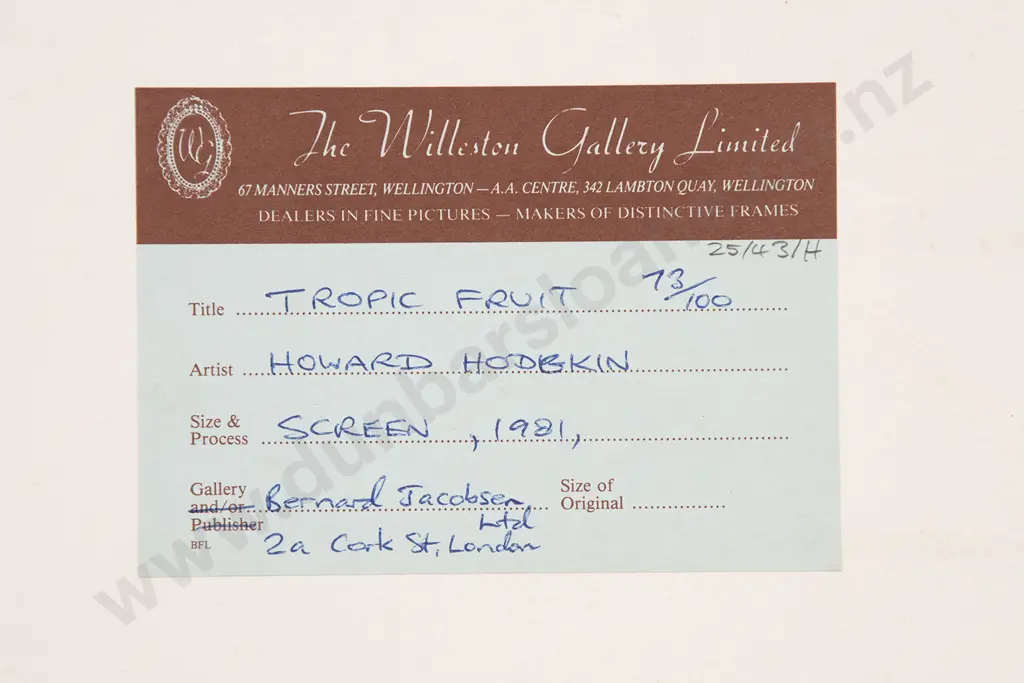 The Willeston Gallery Limited
67 MANNERS STREET, WELLINGTON — A.A. CENTRE, 342 LAMBTON QUAY, WELLINGTON
DEALERS IN FINE PICTURES — MAKERS OF DISTINCTIVE FRAMES
25/43/H
Title TROPIC FRUIT 73/100
Artist HOWARD HODGKIN
Size &
Process SCREEN, 1981,
Gallery
and/or Bernard Jacobsen
Publisher Ltd
BFL 2a Cork St, London
Size of
Original